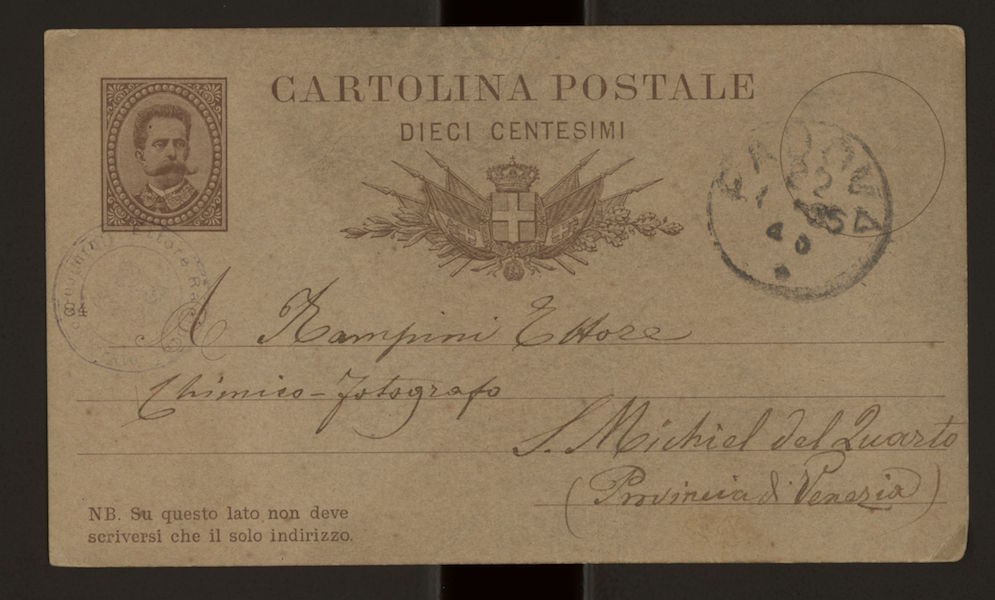 CARTOLINA POSTALE
DIECI CENTESIMI
PADOVA
84
A Rampini Ettore
Chimico-fotografo
S. Michiel del Quarto
(Provincia di Venezia)
NB. Su questo lato non deve
scriversi che il solo indirizzo.